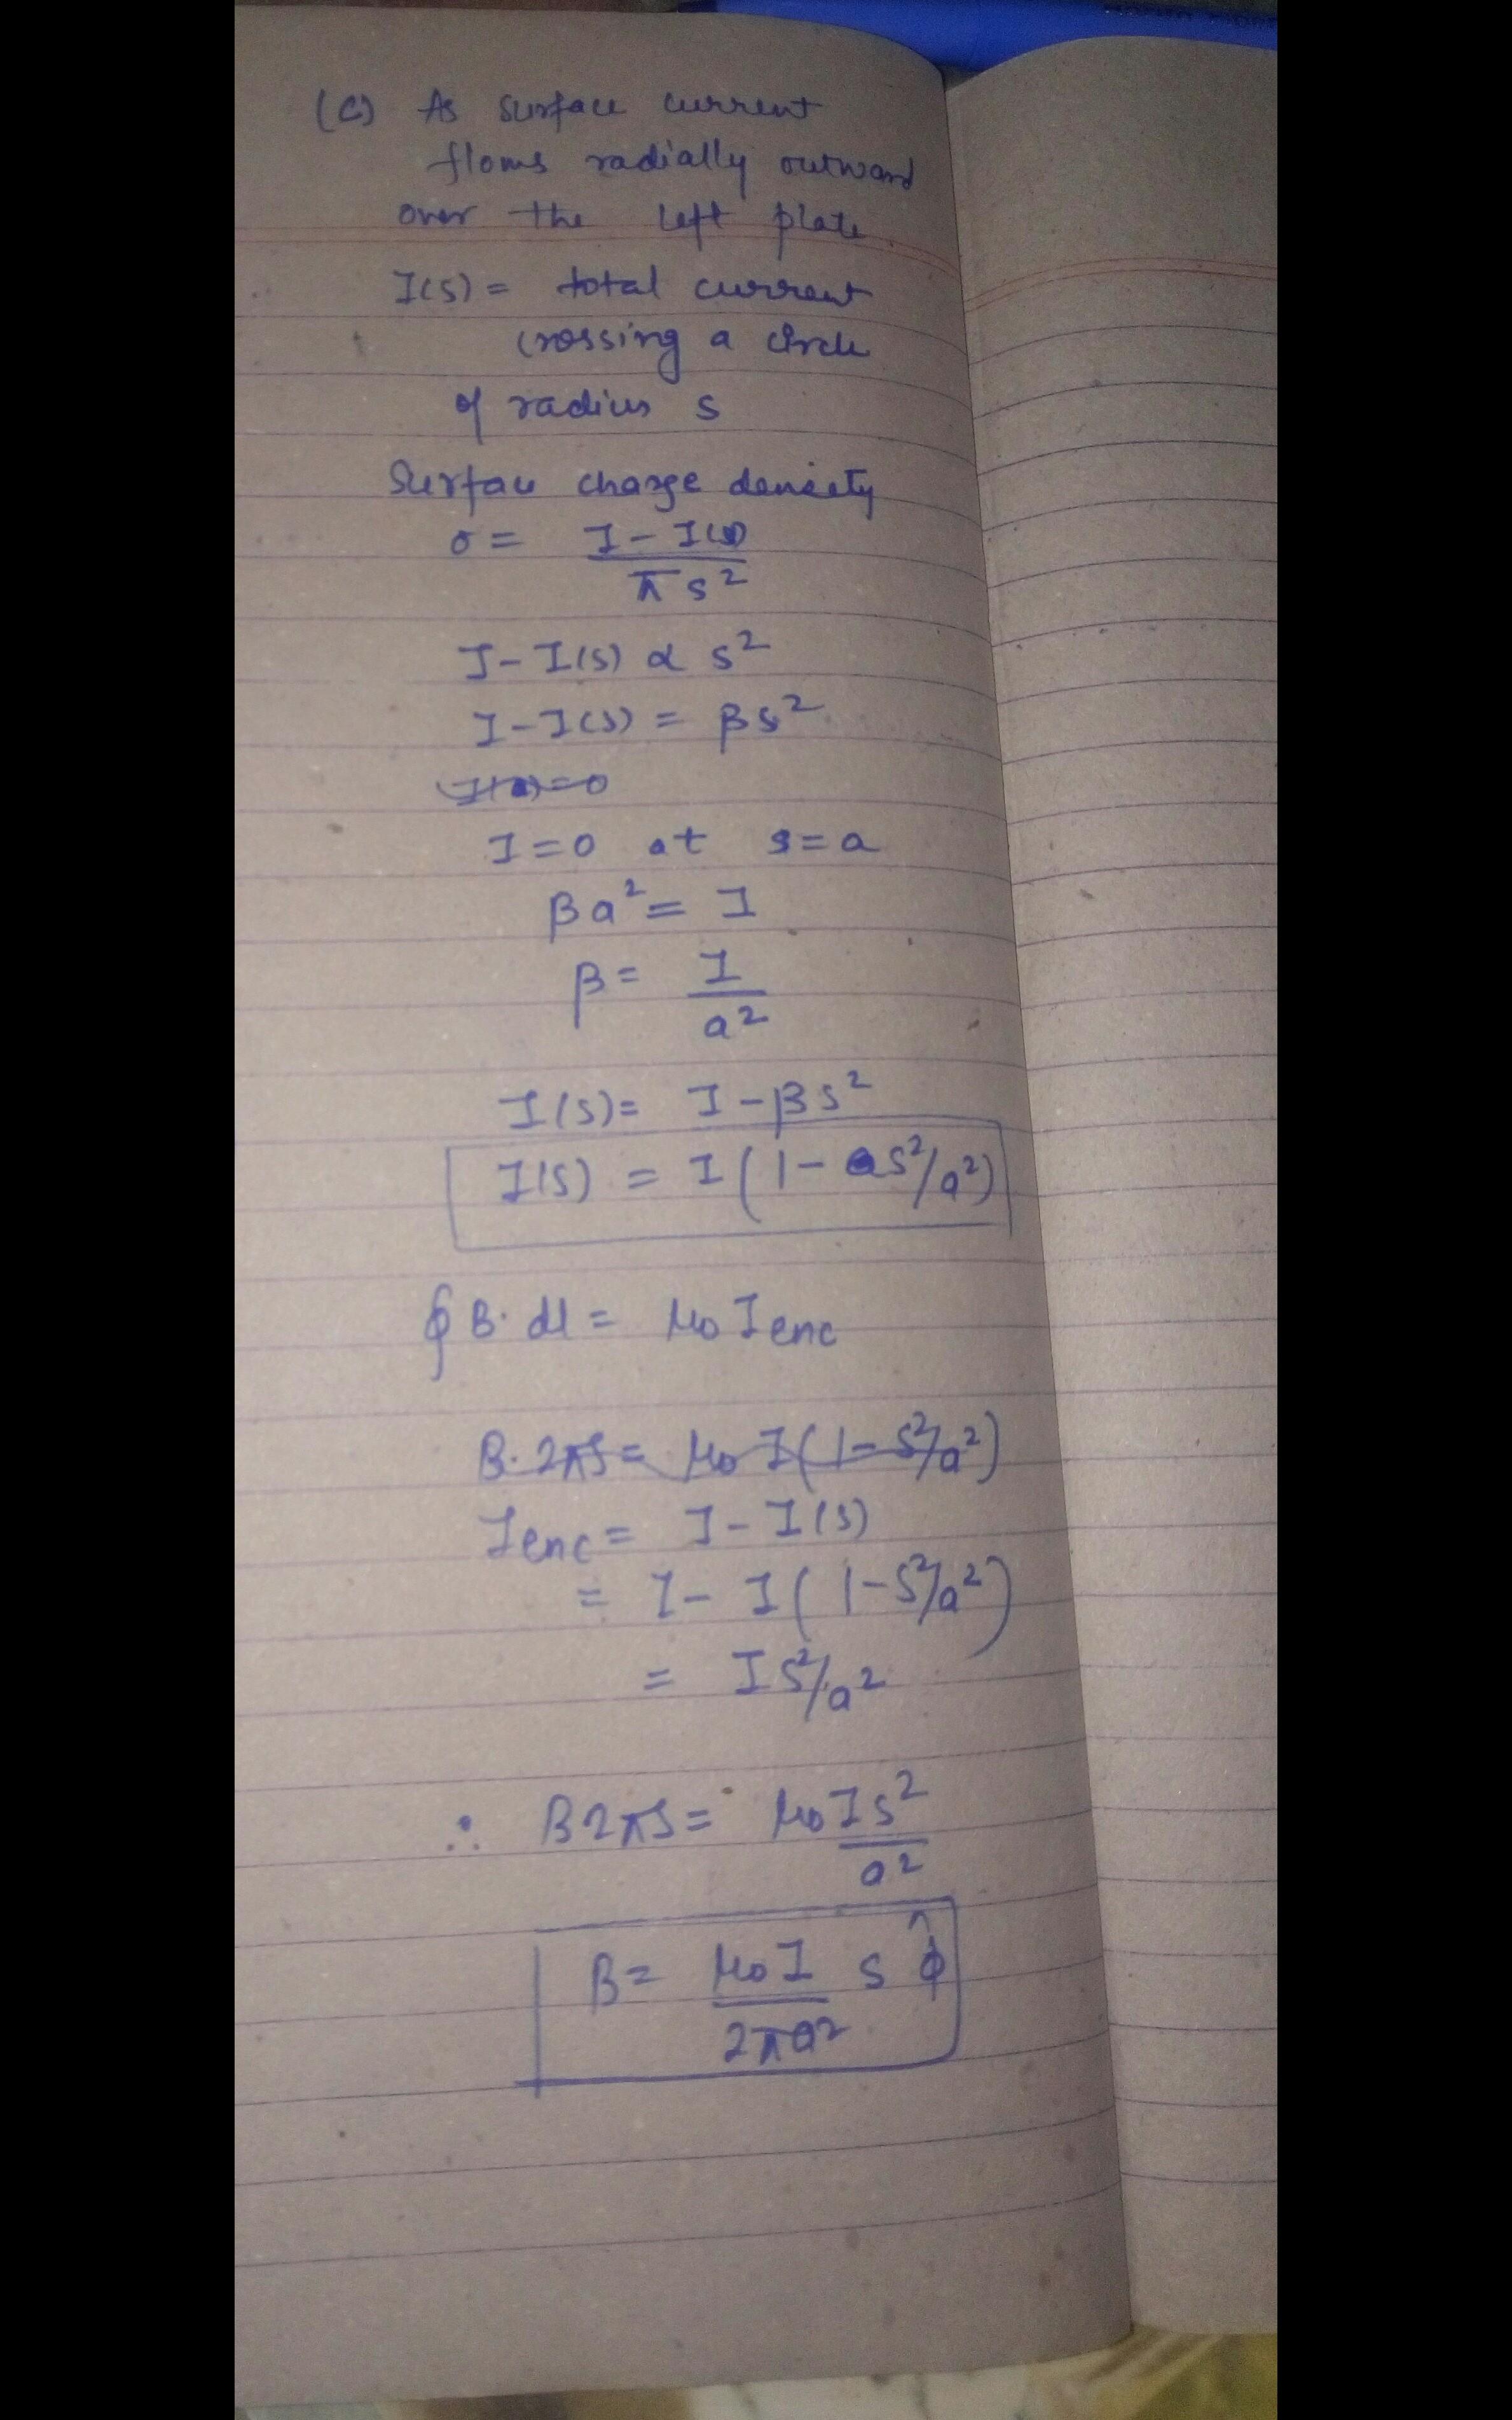 (c) As surface current
flows radially outward
over the left plate.
I(s) = total current
crossing a circle
of radius s
Surface charge density
σ = I - I(s) / πs²
I - I(s) α s²
I - I(s) = βs²
I(a) = 0
I = 0 at s = a
βa² = I
β = I / a²
I(s) = I - βs²
I(s) = I(1 - s²/a²)
∮ B. dl = μ₀ I enc
B. 2πs = μ₀ I(1 - s²/a²)
I enc = I - I(s)
= I - I(1 - s²/a²)
= I s²/a²
∴ B2πs = μ₀ I s² / a²
B = μ₀ I / 2πa² s φ̂